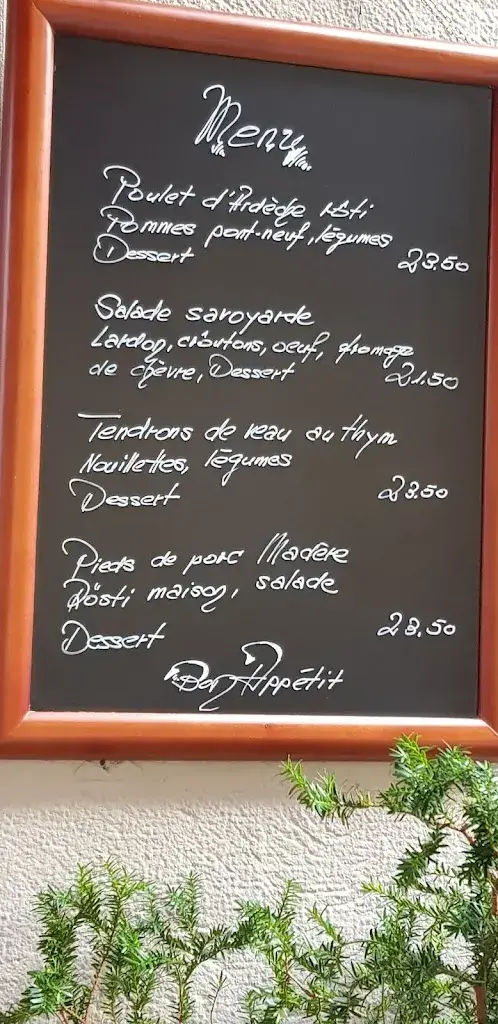 Menu
Poulet d'Ardèche rôti
Pommes pont-neuf, légumes
Dessert 23.50
Salade savoyarde
Lardon, croûtons, oeuf, fromage
de chèvre, Dessert 21.50
Tendrons de veau au thym
Nouillettes, légumes
Dessert 23.50
Pieds de porc Madère
Rösti maison, salade
Dessert 23.50
Bon Appétit